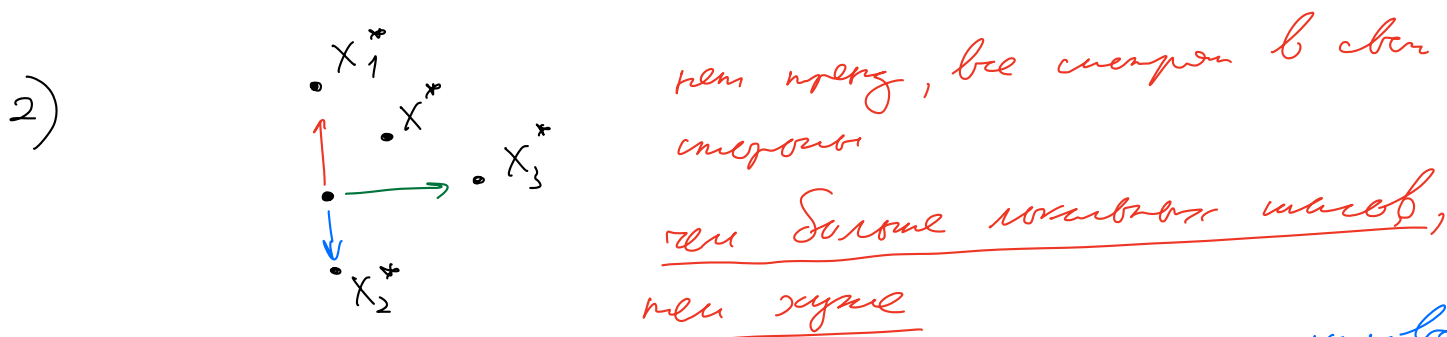 2)
X₁*
X*
X₃*
X₂*
нет предч, все смотрят в свои
стороны
чем больше локальных шагов,
тем хуже